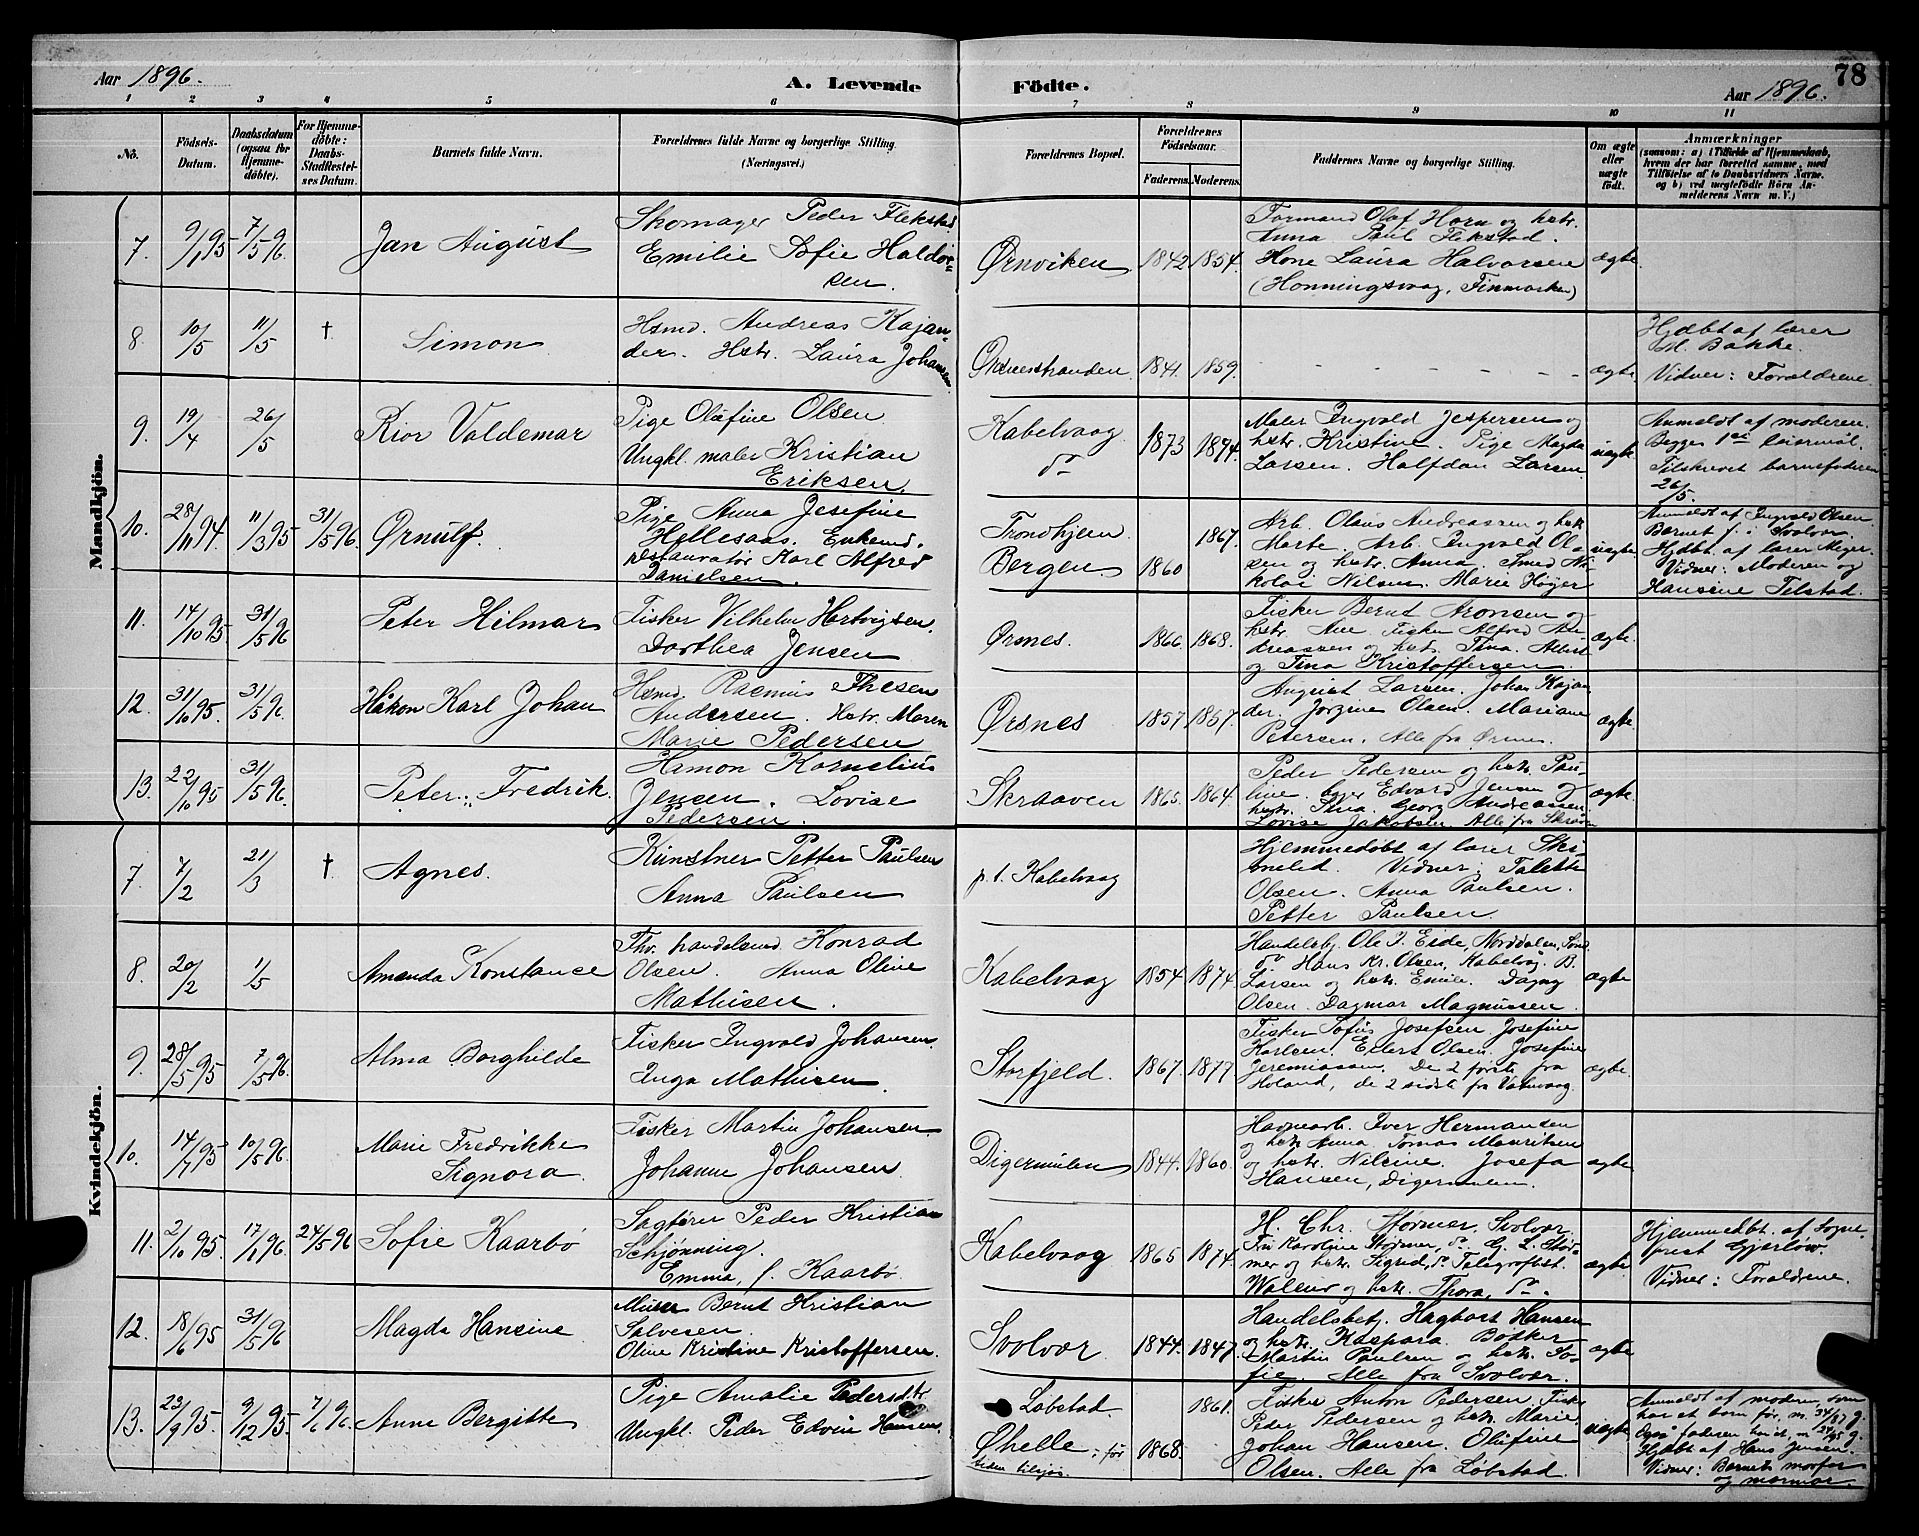 Aar 1896. A. Levende Födte. Aar 1896. 78
1 2 3 4 5 6 7 8 9 10 11
No. Födsels-Datum. Daabsdatum (ogsaa for Hjemmedöbte). For Hjemmedöbte: Daabs-Stadfæstelses Datum. Barnets fulde Navn. Forældrenes fulde Navne og borgerlige Stilling. (Næringsvei.) Forældrenes Bopæl. Forældrenes Födselsaar. Faderens. Moderens. Faddernes Navne og borgerlige Stilling. Om ægte eller uægte födt. Anmærkninger (saasom: a) i Tilfælde af Hjemmedaab, hvem der har forrettet samme, med Tilföielse af to Daabsvidners Navne, og b) ved uægtefödte Börn Anmelderens Navn m. V.)
Mandkjön.
7. 9/1 95 7/5 96. Jan August
Skomager Peder Flekstad
Emilie Sofie Haldor-
sen.
Ørnviken 1842 1854.
Formand Olaf Horn og hstr.
Anna Paul Flekstad.
Hone Laura Halvorsen
(Honningsvaag, Finmarken)
ægte.
8. 10/5 11/5 † Simon
Hsmd. Andreas Kajan-
der. Hstr. Laura Johansen
1841. 1859.
- - - - - -
ægte.
Hjdbt af lærer
M. Bakke.
Vidner: Forældrene
9. 19/4 26/5 Kior Valdemar
Pige Olufine Olsen
Ungkl. maler Kristian
Eriksen.
Kabelvaag
do
1873 1874.
Maler Ingvald Jespersen og
hstr. Kristine. Pige Magda
Larsen. Halfdan Larsen
uægte
Anmeldt af moderen.
Begges 1ste leiermål.
Tilskrevet barnefaderen
26/5.
10. 28/11 94. 11/3 95 31/5 96. Ørnulf.
Pige Anna Josefine
Hellesaas. Enkemd.
restauratør Karl Alfred
Danielsen.
Trondhjem
Bergen
1860 1867.
Arb. Olaus Andreassen og hstr.
Marte. Arb. Ingvald Ol-
sen og hstr. Anna. Smed Ni-
kolai Nilsen. Marie Høyer
uægte
Anmeldt af Ingvald Olsen
Barnet f. i Svolvær.
Hjdbt af lærer Meyer.
Vidner: Moderen og
Hansine Tilstad.
11. 14/10 95. 31/5 96 Peter Hilmar
Fisker Vilhelm Hartvigsen.
Dorthea Jensen
Ørsnes. 1866. 1868.
Fisker Bernt Aronsen og
hstr. Ane. Fisker Alfred An-
dreassen og hstr. Tina. Albert
og Tina Kristoffersen.
ægte.
12. 31/10 95. 31/5 96. Håkon Karl Johan
Hsmd. Rasmus Thesen
Andersen. Hstr. Maren
Marie Pedersen
Ørsnes 1857 1857.
August Larsen. Johan Kajan
der. Jorgine Olsen. Mariane
Petersen. Alle fra Ørsnes.
ægte.
13. 22/10 95 31/5 96. Peter Fredrik.
Hamon Kornelius
Jensen. Lovise
Pedersen.
Skraaven 1865. 1864.
Peder Pedersen og hstr. Pau-
line. Edvard Jensen og
hstr. Stina. Georg Andreassen.
Lovise Jakobsen. Alle fra Skraaven
ægte.
Kvindekjön.
7. 7/2 21/3 † Agnes.
Kunstner Petter Paulsen
Anna Paulsen
p. t. Kabelvaag
Hjemmedøbt af lærer Ski-
melid. Vidner: Talette
Olsen. Anna Paulsen.
Petter Paulsen
8. 20/2 1/5 Amanda Konstance
Fhv. handelsmd. Konrad
Olsen. Anna Oline
Mathisen.
Kabelvaag 1854. 1874.
Handelsbj. Ole J. Eide, Norddalen, Søndm.
do Hans Kr. Olsen, Kabelvåg. B.
Larsen og hstr. Emilie. Dagny
Olsen. Dagmar Magnussen
ægte
9. 28/5 95 7/5 96. Alma Borghilde
Fisker Ingvald Johansen.
Inga Mathisen.
Storfjeld. 1867. 1877
Fisker Sofus Josefsen. Josefine
Karlsen. Eilert Olsen. Josefine
Jeremiassen. De 2 første fra
Holand, de 2 sidste fra Vatervaag
ægte.
10. 14/7 95 10/5 96. Marie Fredrikke
Signora.
Fisker Martin Johansen.
Johanne Johansen.
Digermulen 1844. 1860.
Havnearb. Iver Hermansen
og hstr. Anna. Tomas Mauritsen
og hstr. Nilsine. Josefa
Hansen, Digermulen.
ægte
11. 2/10 95. 17/1 96. 24/5 96 Sofie Kaarbø
Sagfører Peder Kristian
Schjønning.
Emma, f. Kaarbø.
Kabelvaag 1865 1874.
H. Chr. Størmer, Svolvær.
Fru Karoline Størmer, do. G. L. Stør-
mer og hstr. Sigrid, do Telegrafbst.
og hstr. Thora, do.
ægte
Hjemmedbt. af sogne-
prest Gjerløw.
Vidner: Forældrene.
12. 18/6 95 31/5 96 Magda Hansine
Murer Bernt Kristian
Salvesen.
Oline Kristine Kristoffersen.
Svolvær 1844. 1847.
Handelsbetj. Hagbart Hansen
og hstr. Kaspara. Bødker
Martin Paulsen og hstr. So-
fie. Alle fra Svolvær.
ægte
13. 23/9 95. 9/12 95. 7/6 96. Anne Bergitte
Pige Amalie Pedersdtr.
Ungkl. Peder Edvin Hansen.
Løbstad.
Ohelle, før
1868. 1861.
Fisker Anton Pedersen. Fisker
Peder Pedersen og hstr. Marie
Johan Hansen. Olufine
Olsen. Alle fra Løbstad.
uægte
Anmeldt af moderen som
har et barn før, m. 34/87 g.
Også faderen har et, m 24/95 g.
Hjdbt af Hans Jensen.
Vidner: Barnets morfar
og mormor.